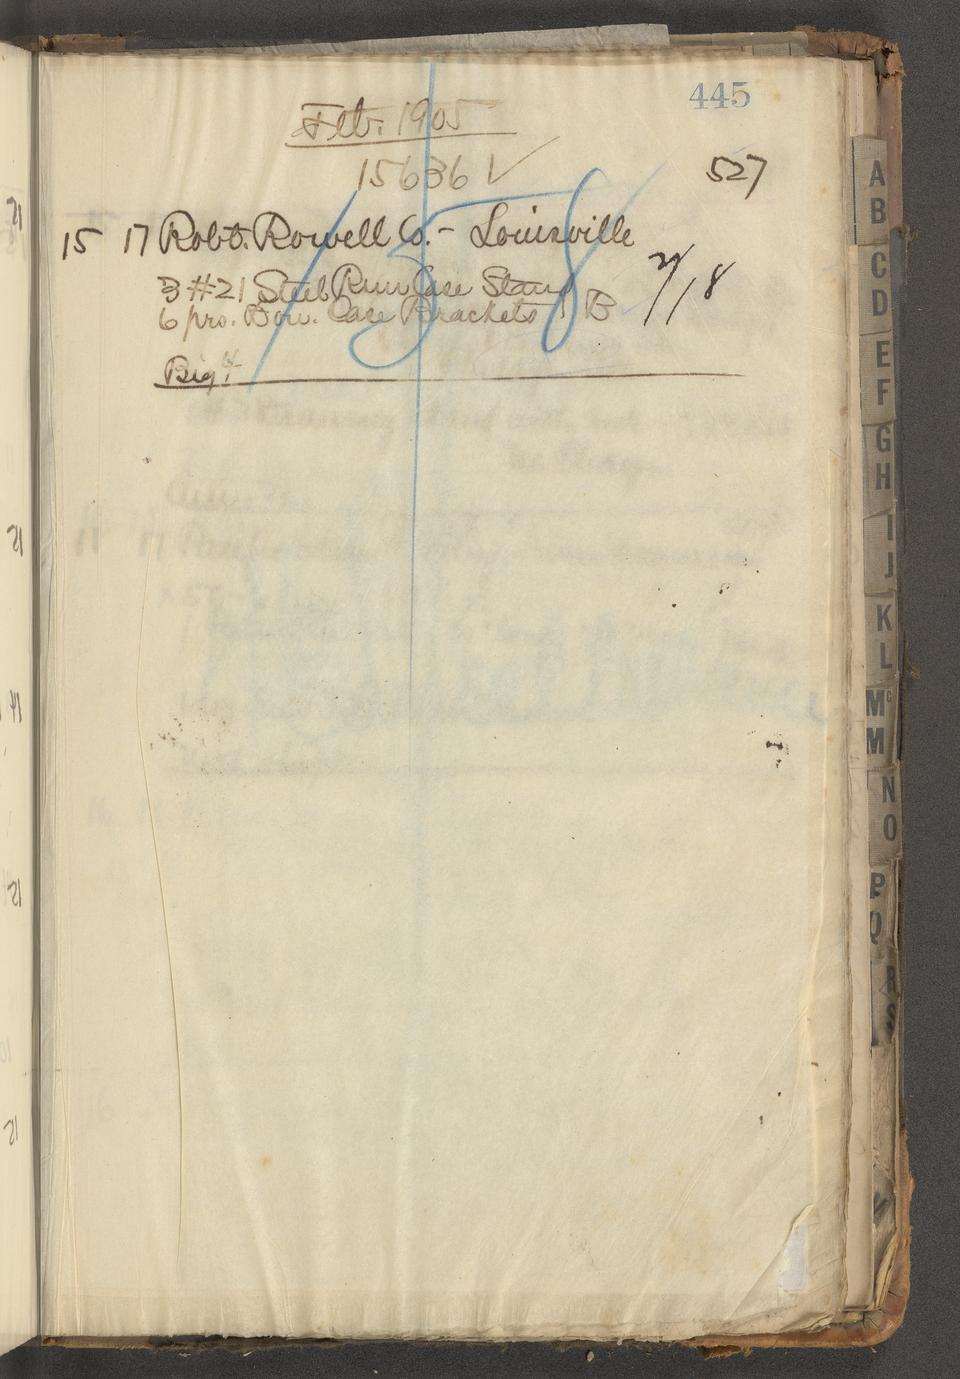 445
Feb. 1905
15636 ✓
527
15 17 Robt. Rowell Co. - Louisville
3 #21 Steel Run Case Stand
2/18
6 prs. Bow. Case Brackets B
Big 4
158
A
B
C
D
E
F
G
H
I
J
K
L
Mc
M
N
O
P
Q
R
S